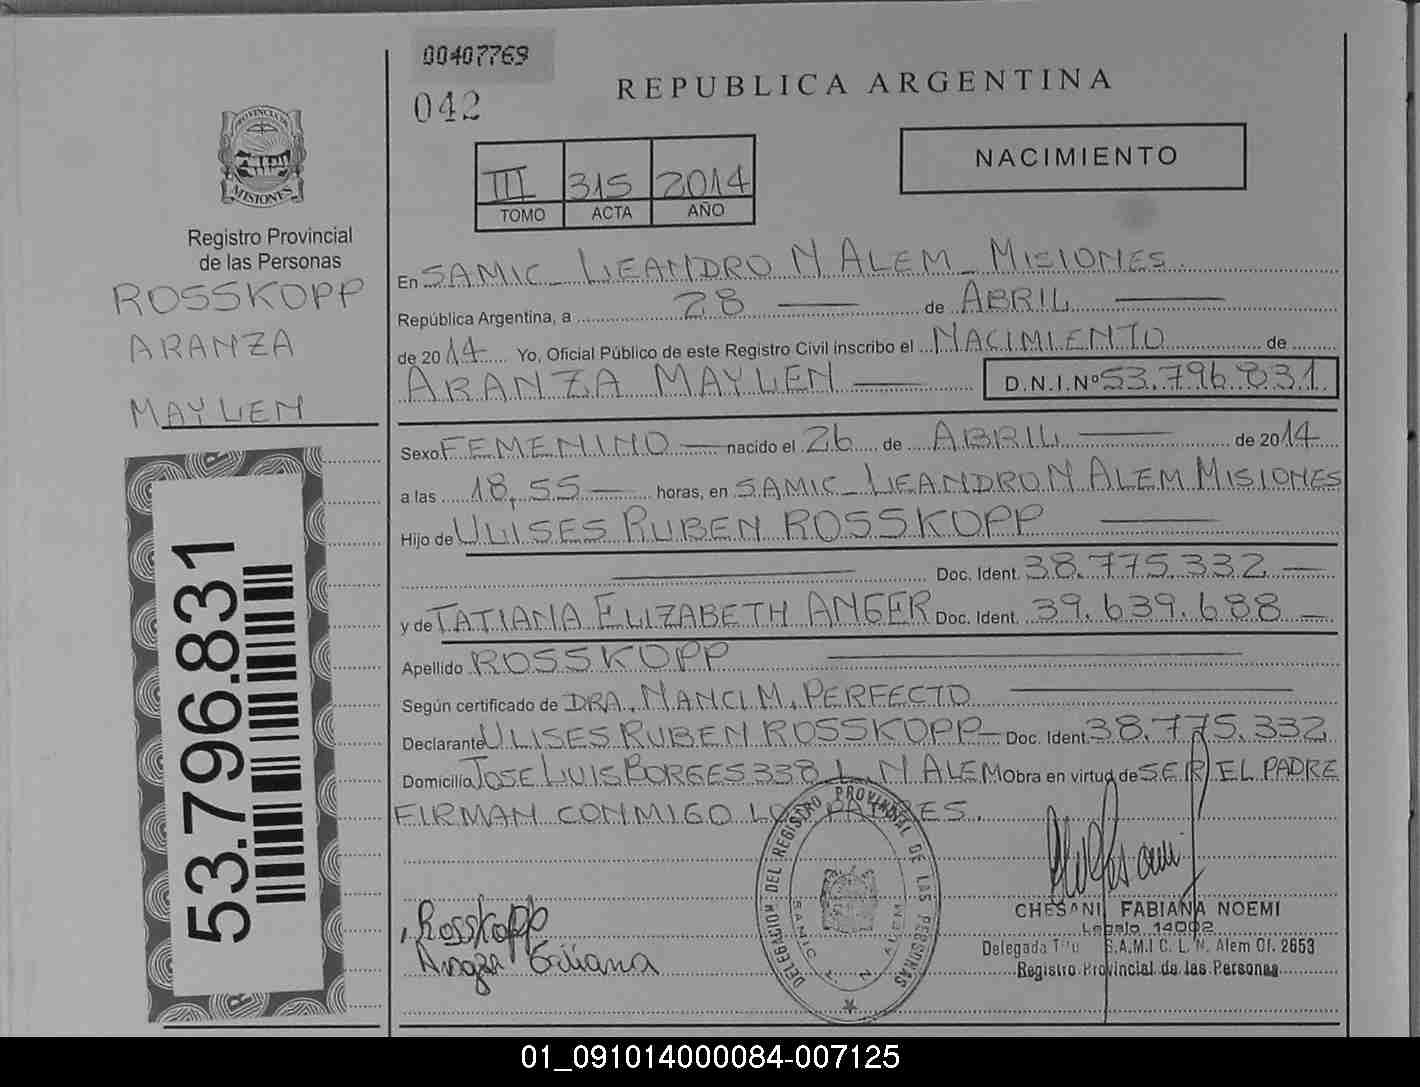 00407769
042
REPUBLICA ARGENTINA
NACIMIENTO
III 315 2014
TOMO ACTA AÑO
PROVINCIA DE
MISIONES
Registro Provincial
de las Personas
ROSSKOPP
ARANZA
MAYLEN
53.796.831
En SAMIC_ LEANDRO N ALEM_ MISIONES.
República Argentina, a 28 — de ABRIL —
de 2014 Yo, Oficial Público de este Registro Civil inscribo el NACIMIENTO de
ARANZA MAYLEN — D.N.I.Nº 53.796.831.
Sexo FEMENINO — nacido el 26 de ABRIL — de 2014
a las 18,55 — horas, en SAMIC_ LEANDRO N ALEM MISIONES
Hijo de ULISES RUBEN ROSSKOPP —
— Doc. Ident. 38.775.332 —
y de TATIANA ELIZABETH ANGER Doc. Ident. 39.639.688 —
Apellido ROSSKOPP —
Según certificado de DRA. NANCI M. PERFECTO —
Declarante ULISES RUBEN ROSSKOPP — Doc. Ident. 38.775.332
Domicilia JOSE LUIS BORGES 338 L. N ALEM Obra en virtud de SER EL PADRE
FIRMAN CONMIGO LOS PADRES.
Rosskopp
Tatiana
DELEGACION DEL REGISTRO PROVINCIAL DE LAS PERSONAS
SAMIC L. N. ALEM
CHESANI FABIANA NOEMI
Legajo 14002
Delegada S.A.M.I.C. L. N. Alem Of. 2653
Registro Provincial de las Personas
01_091014000084-007125